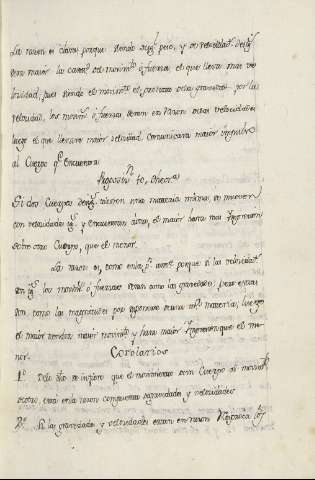 La razon es clara; porque siendo desig.s peso, y su velocidad desig.s
sera maior la cantd. de movimto. ó fuerza el que lleva mas ve-
locidad, pues siendo el movimto. el producto de la gravedad por la
velocidad, los movims. ó fuerzas seran en razon de las velocidades
luego el que lleva maior velocidad, comunicara maior impulso
al Cuerpo qe. encuentra.
Proposin. 10, Theora.
Si dos Cuerpos desigs. de una materia misma, se mueven
con velocidades igs. y encuentran á otro, el maior hara mas impresion
sobre otro Cuerpo, que el menor.
La razon es, como en la pa. antes. porque si las velocidads.
son igs. los movims. ó fuerzas seran como las gravedades; pero estas
son como las magnitudes por suponerse de una msma. materia, luego
el maior tendra maior movimto. y hara maior impresion que el me-
nor.
Corolarios
1.º De lo dho se infiere que el movimiento de un Cuerpo al movimto.
de otro, está en la razon compuesta de gravedades y velocidades
2.º Si las gravedades y velocidades estan en razon reciproca los